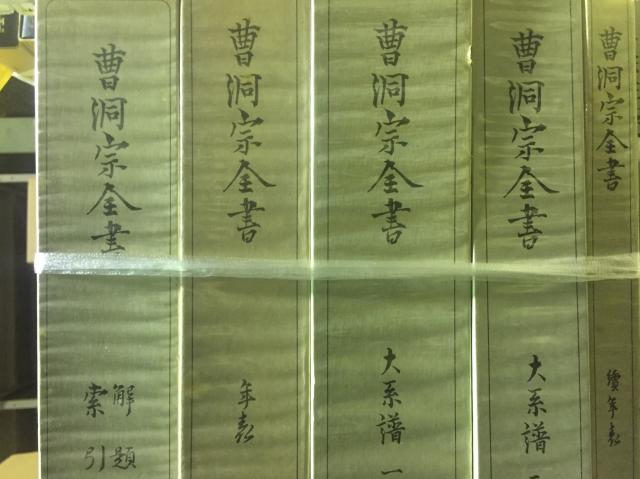 曹洞宗全書
解題
索引
曹洞宗全書
年表
曹洞宗全書
大系譜 一
曹洞宗全書
大系譜
曹洞宗全書
續年表